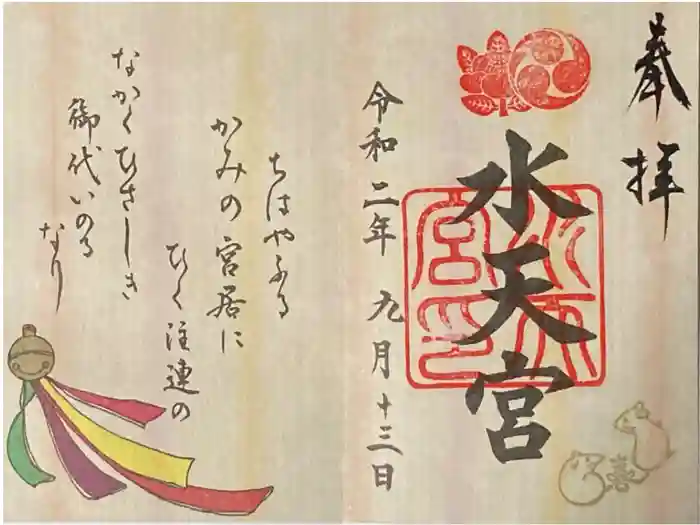 奉拝
水天宮
令和二年九月十三日
ちはやふる
かみの宮居に
ひく注連の
なかくひさしき
御代いのる
なり
水天宮印
喜